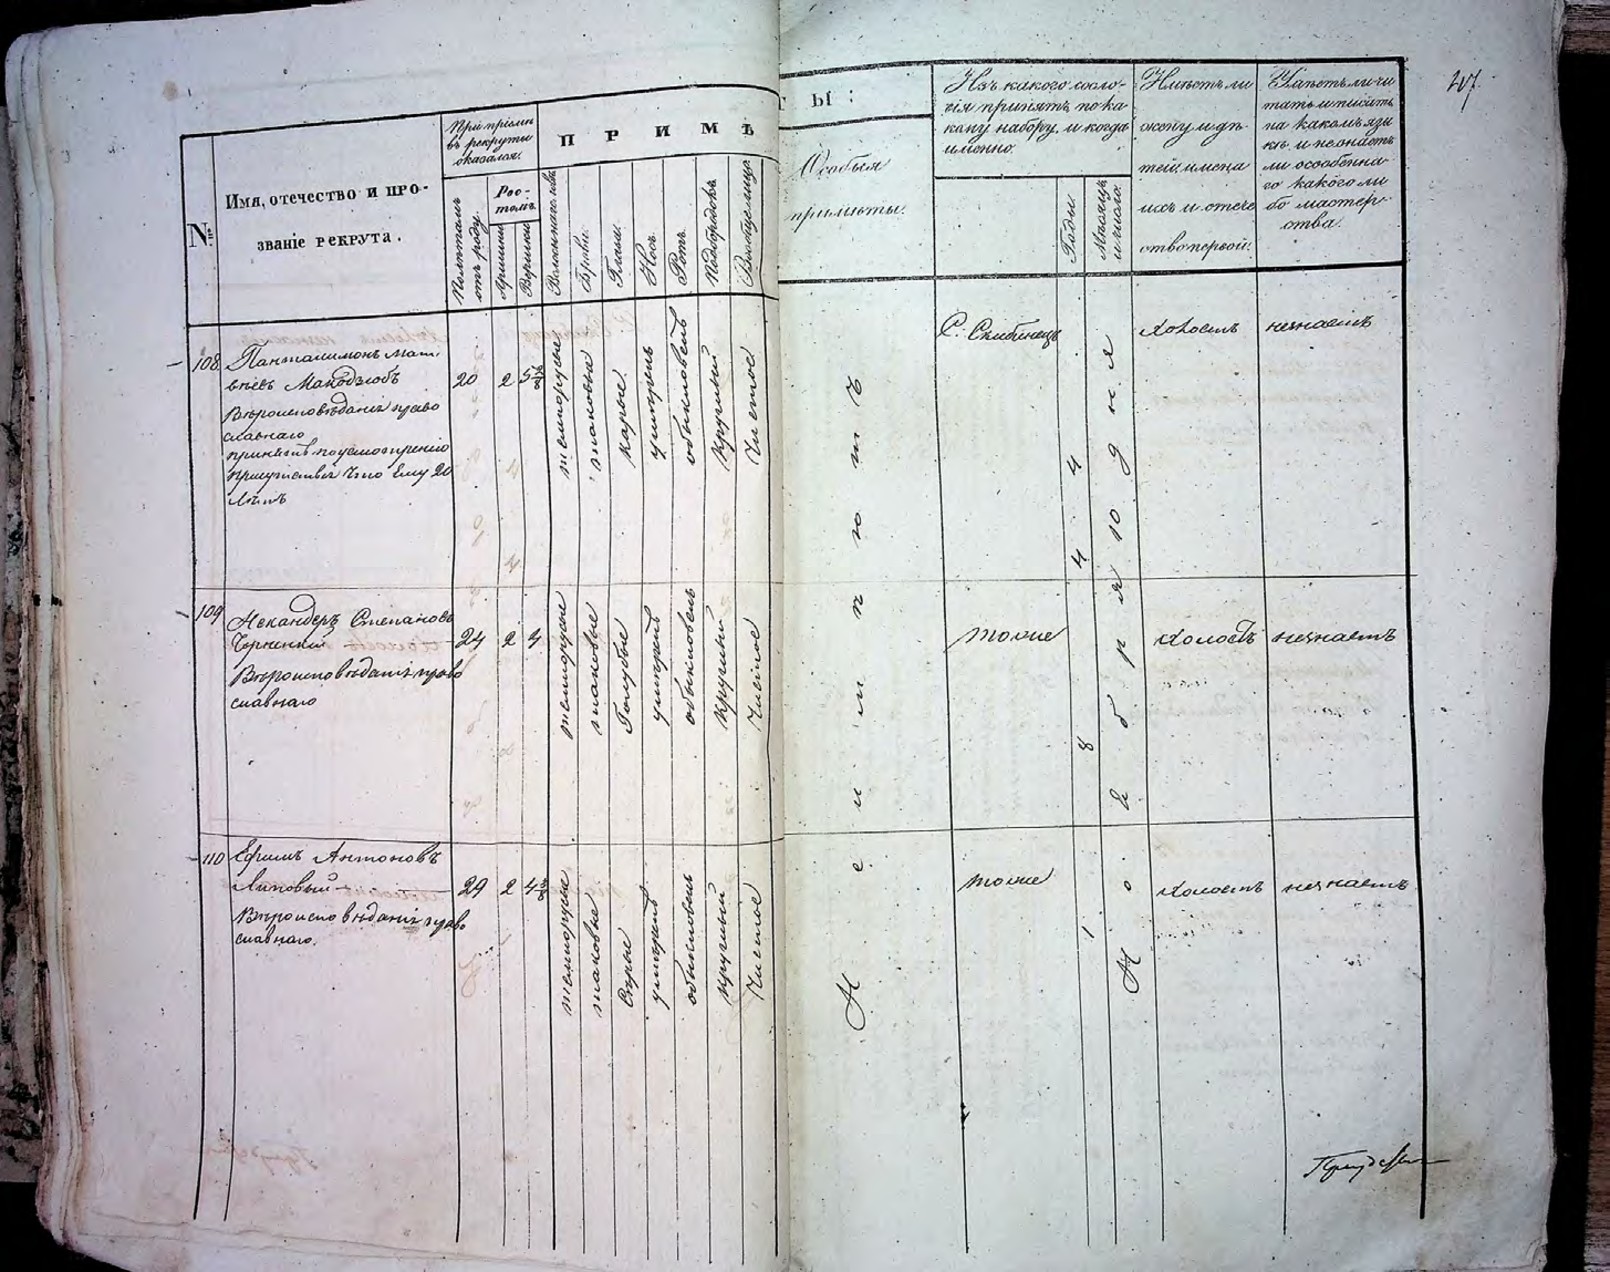 207.
№
Имя, отечество и про-
званіе рекрута.
При пріемѣ
въ рекруты
оказался:
Полнѣтамъ
отъ роду.
Рос-
томъ.
Аршины
Вершки
ПРИМѢ
ТЫ:
Брови.
Глаза.
Носъ.
Ротъ.
Подбородокъ
Вообще лице
Особыя
примѣты.
Изъ какого сосло-
вія принятъ по ка-
кому набору, и когда
именно.
Годы.
Мѣсяцъ
и число.
Имѣетъ ли
жену и дѣ-
тей, имена
ихъ и отече
ство первой.
Умѣетъ ли чи
тать и писать
на какомъ язы
кѣ и не знаетъ
ли особенна-
го какого ли
бо мастер-
ства.
108
Панталимонъ Мат.
вѣевъ Макодзюбъ
Вѣроисповѣданія право
славнаго
принятъ по усмотренію
присутствія что ему 20
лѣтъ
20
2
5 7/8
темнорусые
таковые
Карые
умѣренъ
обыкновенъ
Круглый
Чистое
С. Скибинецъ
Холостъ
незнаетъ
109
Александръ Степановъ
Черненкій
Вѣроисповѣданія право
славнаго
24
2
4
темнорусые
таковые
Голубые
умѣренъ
обыкновенъ
Круглый
Чистое
тоже
холостъ
незнаетъ
110
Ефимъ Антоновъ
Липовый
Вѣроисповѣданія право
славнаго.
29
2
4
темнорусые
таковые
Сѣрые
умѣренъ
обыкновенъ
круглый
Чистое
тоже
холостъ
незнаетъ
Неимѣетъ
1844
Ноября 10 дня